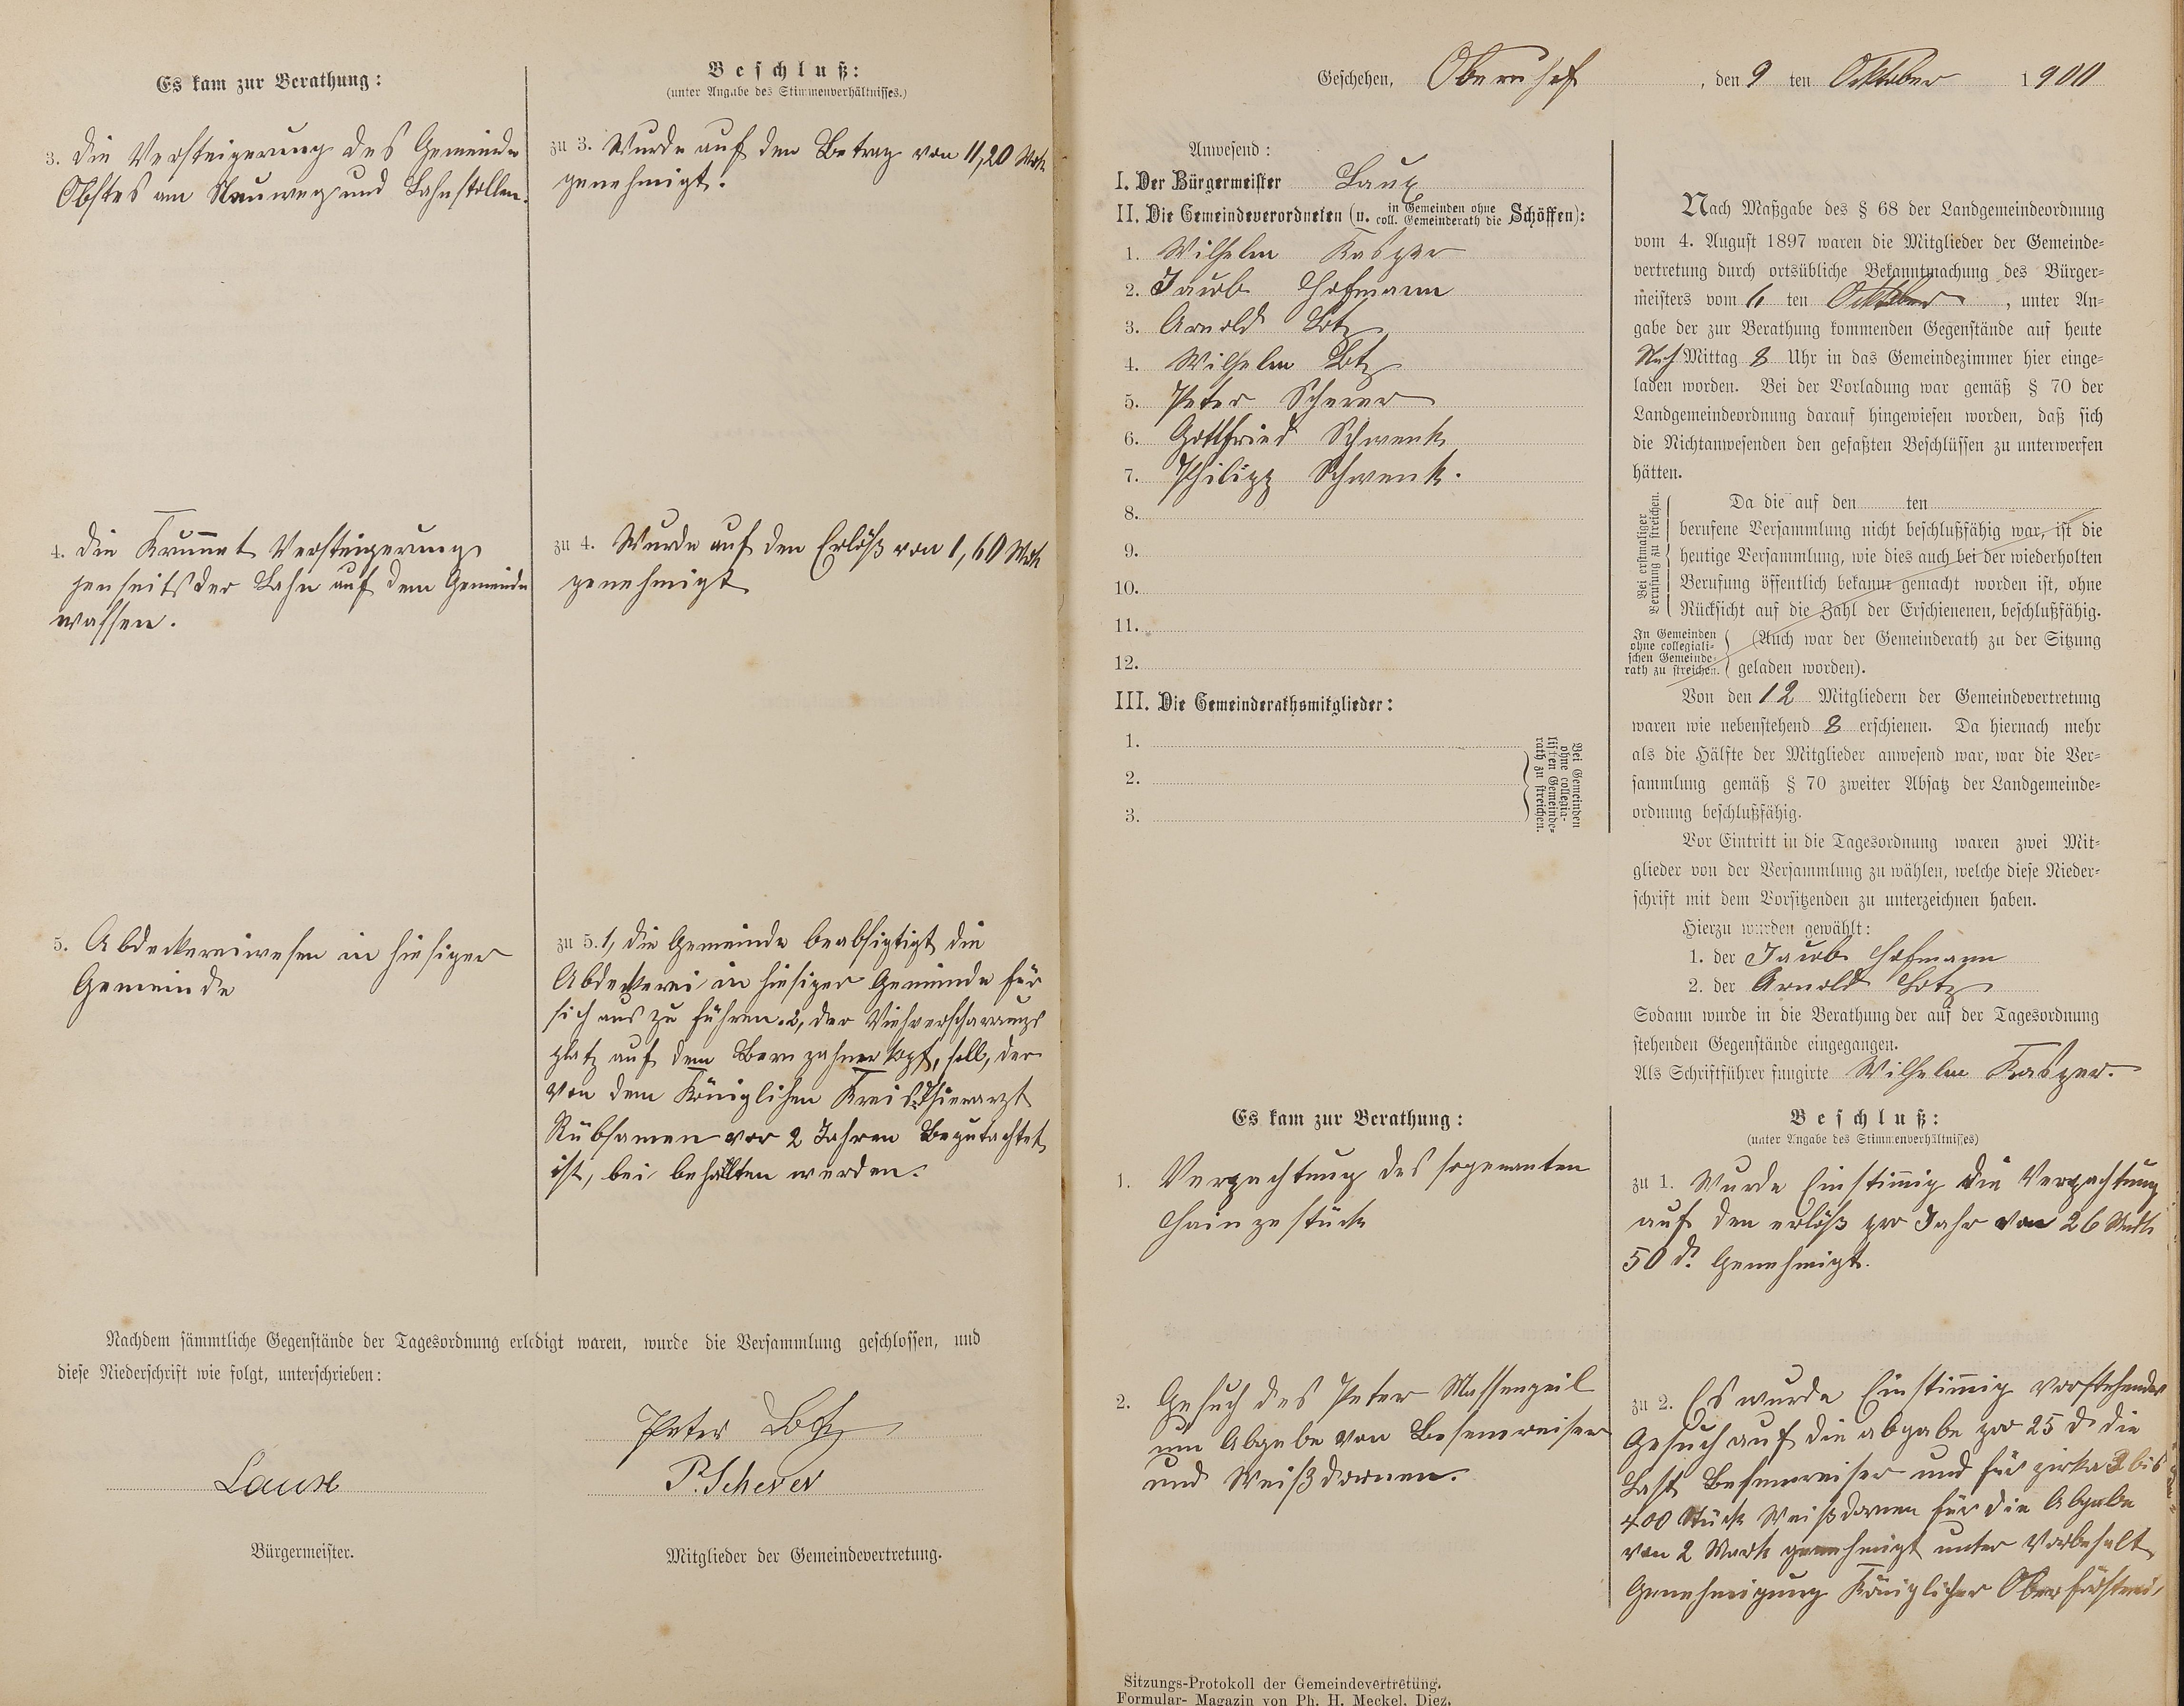 Es kam zur Berathung:
Beschluß:
(unter Angabe des Stimmenverhältnisses.)
3. Die Versteigerung des Gemeinde
Obstes am Neuweg und Lahnstollen.
zu 3. Wurde auf den Betrag von 11,20 Mrk
genehmigt.
4. Die Krummet Versteigerung
jenseits der Lahn auf dem Gemeinde
wassen.
zu 4. Wurde auf den Erlöß von 1,60 Mrk
genehmigt
5. Abdeckereiwesen in hiesiger
Gemeinde
zu 5. 1, die Gemeinde beabsigtigt die
Abdeckerei in hiesiger Gemeinde für
sich aus zu führen. 2, der Viehverscharrungs
platz auf dem kopf, soll, der
von dem Königlichen Kreis Thierarzt
Rübsamen vor 2 Jahren Begutachtet
ist, bei behalten werden.
Nachdem sämmtliche Gegenstände der Tagesordnung erledigt waren, wurde die Versammlung geschlossen, und
diese Niederschrift wie folgt, unterschrieben:
Peter Lotz
Laux
P. Scherer
Bürgermeister.
Mitglieder der Gemeindevertretung.
Geschehen, Obernhof, den 9 ten Oktober 1900
Anwesend:
I. Der Bürgermeister Laux
II. Die Gemeindeverordneten (u. in Gemeinden ohne coll. Gemeinderath die Schöffen):
1. Wilhelm Kasper
2. Jacob Hofmann
3. Arnold Lotz
4. Wilhelm Lotz
5. Peter Scherer
6. Gottfried Schwenk
7. Philipp Schwenk.
8.
9.
10.
11.
12.
III. Die Gemeinderathsmitglieder:
1.
2.
3.
Bei Gemeinden
ohne collegia-
lischen Gemeinde-
rath zu streichen.
Nach Maßgabe des § 68 der Landgemeindeordnung
vom 4. August 1897 waren die Mitglieder der Gemeinde-
vertretung durch ortsübliche Bekanntmachung des Bürger-
meisters vom 6 ten Oktober, unter An-
gabe der zur Berathung kommenden Gegenstände auf heute
Nach Mittag 8 Uhr in das Gemeindezimmer hier einge-
laden worden. Bei der Vorladung war gemäß § 70 der
Landgemeindeordnung darauf hingewiesen worden, daß sich
die Nichtanwesenden den gefaßten Beschlüssen zu unterwerfen
hätten.
Bei erstmaliger
Berufung zu streichen.
Da die auf den ten
berufene Versammlung nicht beschlußfähig war, ist die
heutige Versammlung, wie dies auch bei der wiederholten
Berufung öffentlich bekannt gemacht worden ist, ohne
Rücksicht auf die Zahl der Erschienenen, beschlußfähig.
In Gemeinden
ohne collegiali-
schen Gemeinde-
rath zu streichen.
(Auch war der Gemeinderath zu der Sitzung
geladen worden).
Von den 12 Mitgliedern der Gemeindevertretung
waren wie nebenstehend 8 erschienen. Da hiernach mehr
als die Hälfte der Mitglieder anwesend war, war die Ver-
sammlung gemäß § 70 zweiter Absatz der Landgemeinde-
ordnung beschlußfähig.
Vor Eintritt in die Tagesordnung waren zwei Mit-
glieder von der Versammlung zu wählen, welche diese Nieder-
schrift mit dem Vorsitzenden zu unterzeichnen haben.
Hierzu wurden gewählt:
1. der Jacob Hofmann
2. der Arnold Lotz
Sodann wurde in die Berathung der auf der Tagesordnung
stehenden Gegenstände eingegangen.
Als Schriftführer fungirte Wilhelm Kasper.
Es kam zur Berathung:
Beschluß:
(unter Angabe des Stimmenverhältnisses)
1. Verpachtung des sogenanten
Hainzestück
zu 1. Wurde Einstimmig die Verpachtung
auf den erlöß pro Jahr von 26 Mark
50 d. Genehmigt.
2. Gesuch des Peter Massengeil
um Abgabe von Besenreiser
und Weißdornen.
zu 2. Es wurde Einstimmig vorstehendes
Gesuch auf die abgabe pro 25 d. die
Last Besenreiser und für zirka 3 bis
400 Stück Weißdornen für die Abgabe
von 2 Mark genehmigt unter Vorbehalt
Genehmigung Königlicher Oberförsterei,
Sitzungs-Protokoll der Gemeindevertretung.
Formular-Magazin von Ph. H. Meckel, Diez.